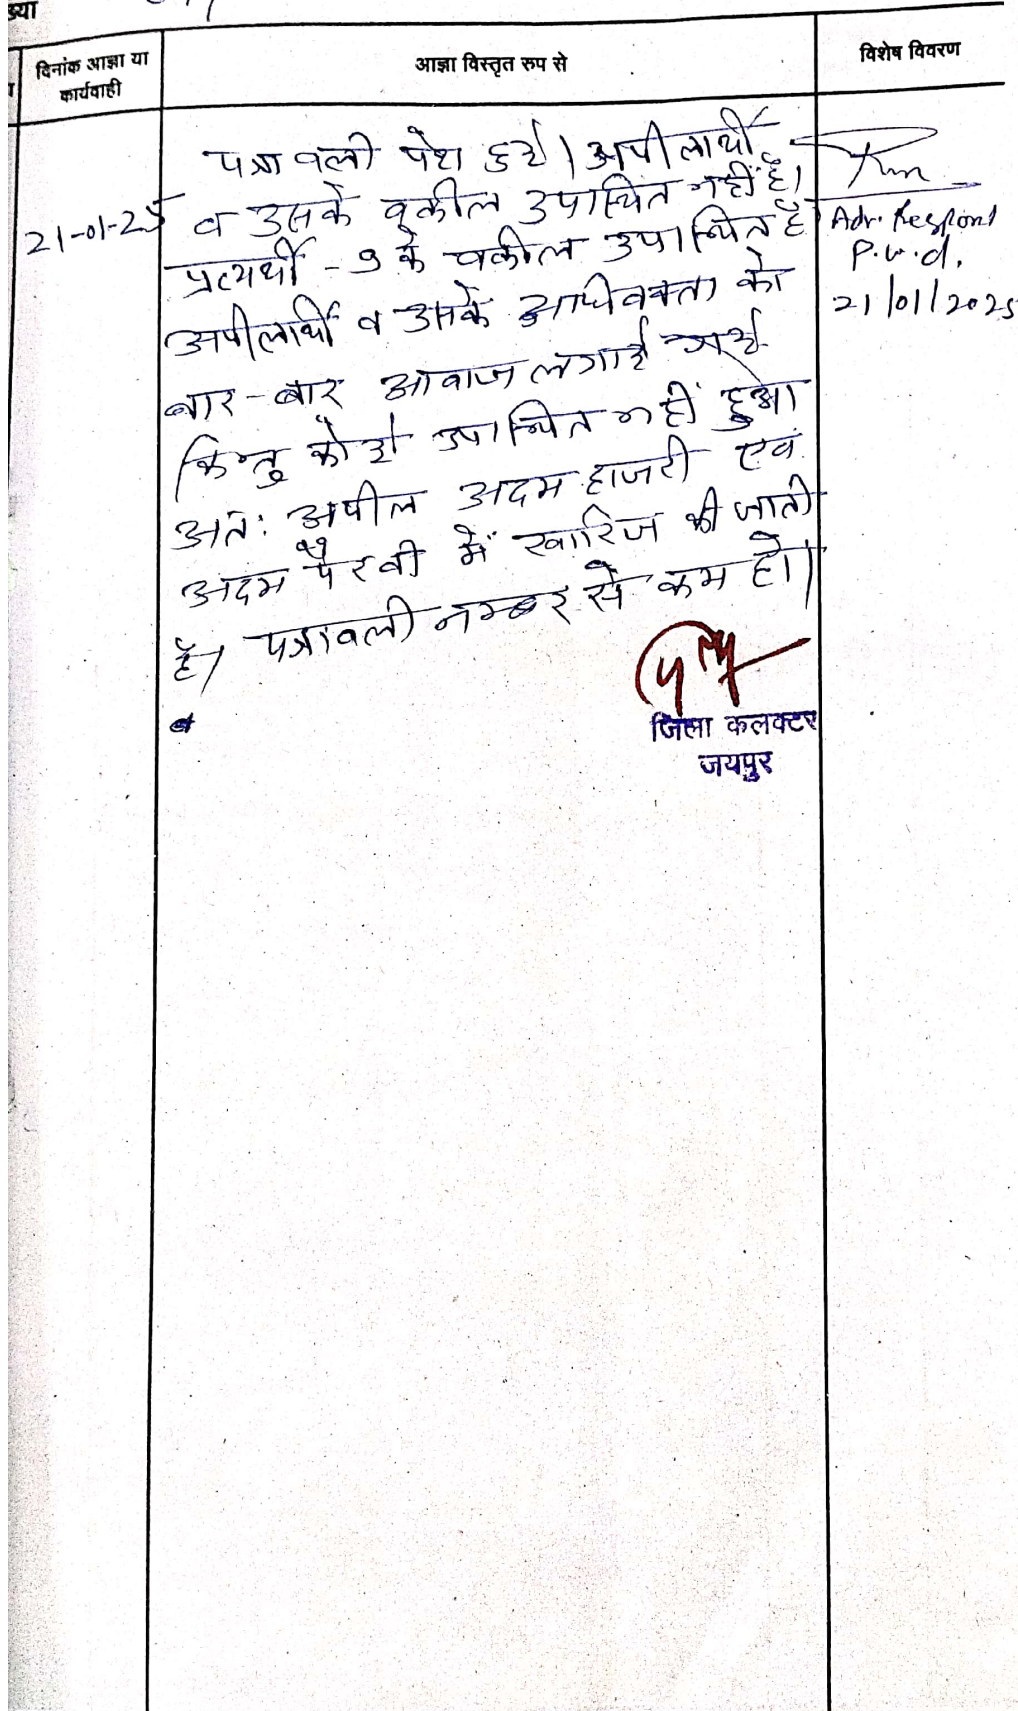 ख्या
दिनांक आज्ञा या
कार्यवाही
आज्ञा विस्तृत रुप से
विशेष विवरण
21-01-25
पत्रावली पेश हुई। अपीलार्थी
व उसके वकील उपस्थित नहीं है।
प्रत्यर्थी - 9 के वकील उपस्थित है
अपीलार्थी व उसके अधिवक्ता को
बार-बार आवाज लगाई गई
किन्तु कोई उपस्थित नहीं हुआ
अतः अपील अदम हाजरी एवं
अदम पैरवी में खारिज की जाती
है। पत्रावली नम्बर से कम हो।
Adv. Respond
P.W.d.
21/01/2025
जिला कलक्टर
जयपुर